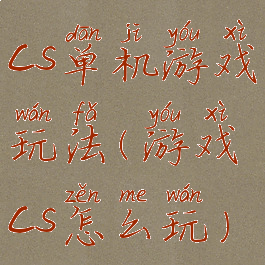 dān jī yóu xì
CS单机游戏
wán fǎ yóu xì
玩法(游戏
zěn me wán
CS怎么玩)